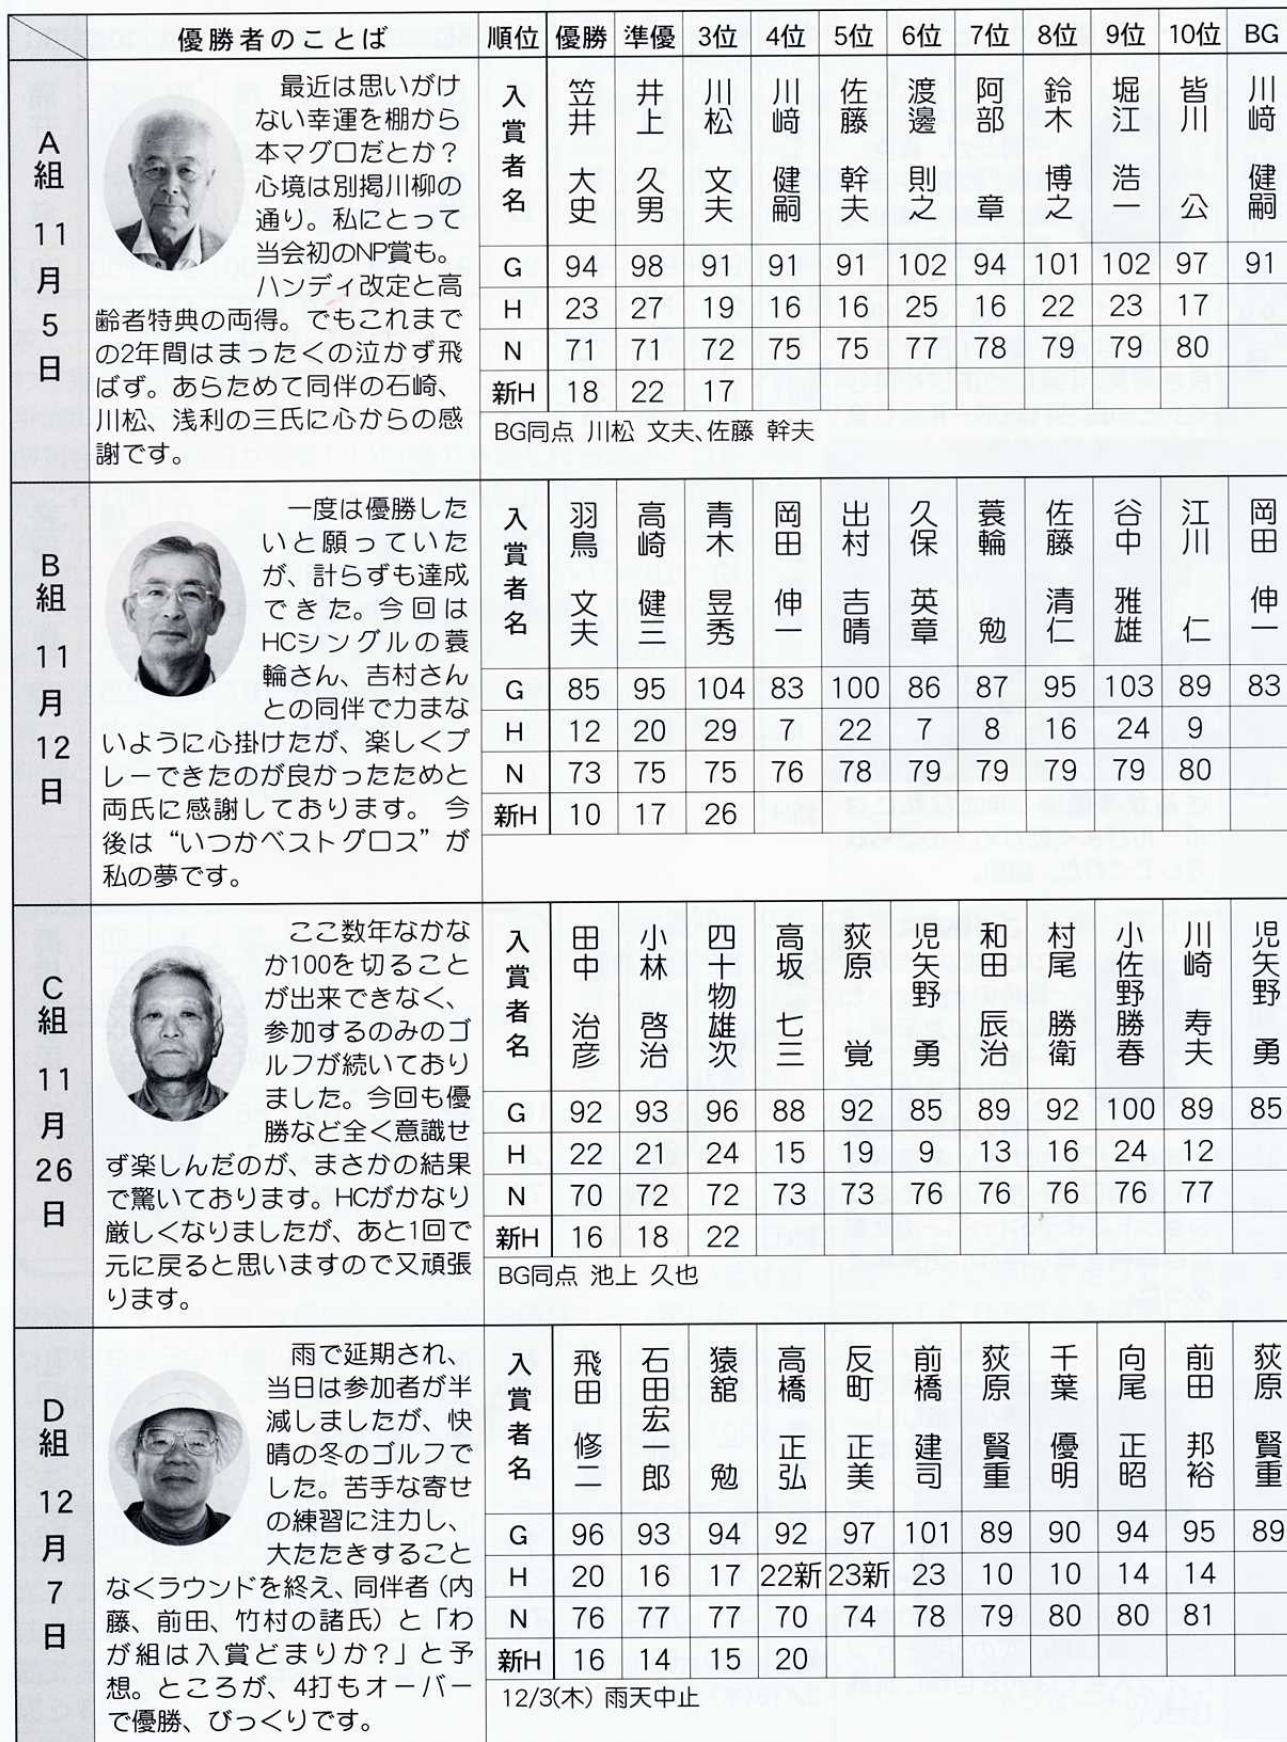 優勝者のことば 順位 優勝 準優 3位 4位 5位 6位 7位 8位 9位 10位 BG
A組 11月5日
最近は思いがけ
ない幸運を棚から
本マグロだとか？
心境は別掲川柳の
通り。私にとって
当会初のNP賞も。
ハンディ改定と高
齢者特典の両得。でもこれまで
の2年間はまったくの泣かず飛
ばず。あらためて同伴の石崎、
川松、浅利の三氏に心からの感
謝です。
入賞者名 笠井 大史 井上 久男 川松 文夫 川﨑 健嗣 佐藤 幹夫 渡邊 則之 阿部 章 鈴木 博之 堀江 浩一 皆川 公 川﨑 健嗣
G 94 98 91 91 91 102 94 101 102 97 91
H 23 27 19 16 16 25 16 22 23 17
N 71 71 72 75 75 77 78 79 79 80
新H 18 22 17
BG同点 川松 文夫、佐藤 幹夫
B組 11月12日
一度は優勝した
いと願っていた
が、計らずも達成
できた。今回は
HCシングルの蓑
輪さん、吉村さん
との同伴で力まな
いように心掛けたが、楽しくプ
レーできたのが良かったためと
両氏に感謝しております。 今
後は“いつかベストグロス”が
私の夢です。
入賞者名 羽鳥 文夫 高崎 健三 青木 昱秀 岡田 伸一 出村 吉晴 久保 英章 蓑輪 勉 佐藤 清仁 谷中 雅雄 江川 仁 岡田 伸一
G 85 95 104 83 100 86 87 95 103 89 83
H 12 20 29 7 22 7 8 16 24 9
N 73 75 75 76 78 79 79 79 79 80
新H 10 17 26
C組 11月26日
ここ数年なかな
か100を切ること
が出来できなく、
参加するのみのゴ
ルフが続いており
ました。今回も優
勝など全く意識せ
ず楽しんだのが、まさかの結果
で驚いております。HCがかなり
厳しくなりましたが、あと1回で
元に戻ると思いますので又頑張
ります。
入賞者名 田中 治彦 小林 啓治 四十物雄次 高坂 七三 荻原 覚 児矢野 勇 和田 辰治 村尾 勝衛 小佐野勝春 川崎 寿夫 児矢野 勇
G 92 93 96 88 92 85 89 92 100 89 85
H 22 21 24 15 19 9 13 16 24 12
N 70 72 72 73 73 76 76 76 76 77
新H 16 18 22
BG同点 池上 久也
D組 12月7日
雨で延期され、
当日は参加者が半
減しましたが、快
晴の冬のゴルフで
した。苦手な寄せ
の練習に注力し、
大たたきすること
なくラウンドを終え、同伴者（内
藤、前田、竹村の諸氏）と「わ
が組は入賞どまりか？」と予
想。ところが、4打もオーバー
で優勝、びっくりです。
入賞者名 飛田 修二 石田宏一郎 猿舘 勉 高橋 正弘 反町 正美 前橋 建司 荻原 賢重 千葉 優明 向尾 正昭 前田 邦裕 荻原 賢重
G 96 93 94 92 97 101 89 90 94 95 89
H 20 16 17 22新 23新 23 10 10 14 14
N 76 77 77 70 74 78 79 80 80 81
新H 16 14 15 20
12/3(木) 雨天中止